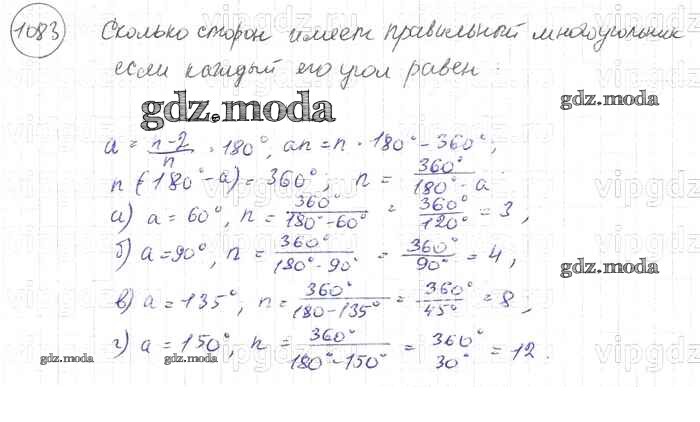 1083 Сколько сторон имеет правильный многоугольник
если каждый его угол равен :
gdz.moda
gdz.moda
a = n-2/n · 180°, an = n · 180° - 360°;
n (180° - a) = 360°; n = 360°/180° - a
а) a = 60°, n = 360°/180° - 60° = 360°/120° = 3,
б) a = 90°, n = 360°/180° - 90° = 360°/90° = 4,
gdz.moda
в) a = 135°, n = 360°/180 - 135° = 360°/45° = 8;
г) a = 150°, n = 360°/180° - 150° = 360°/30° = 12.
gdz.moda
gdz.moda
gdz.moda